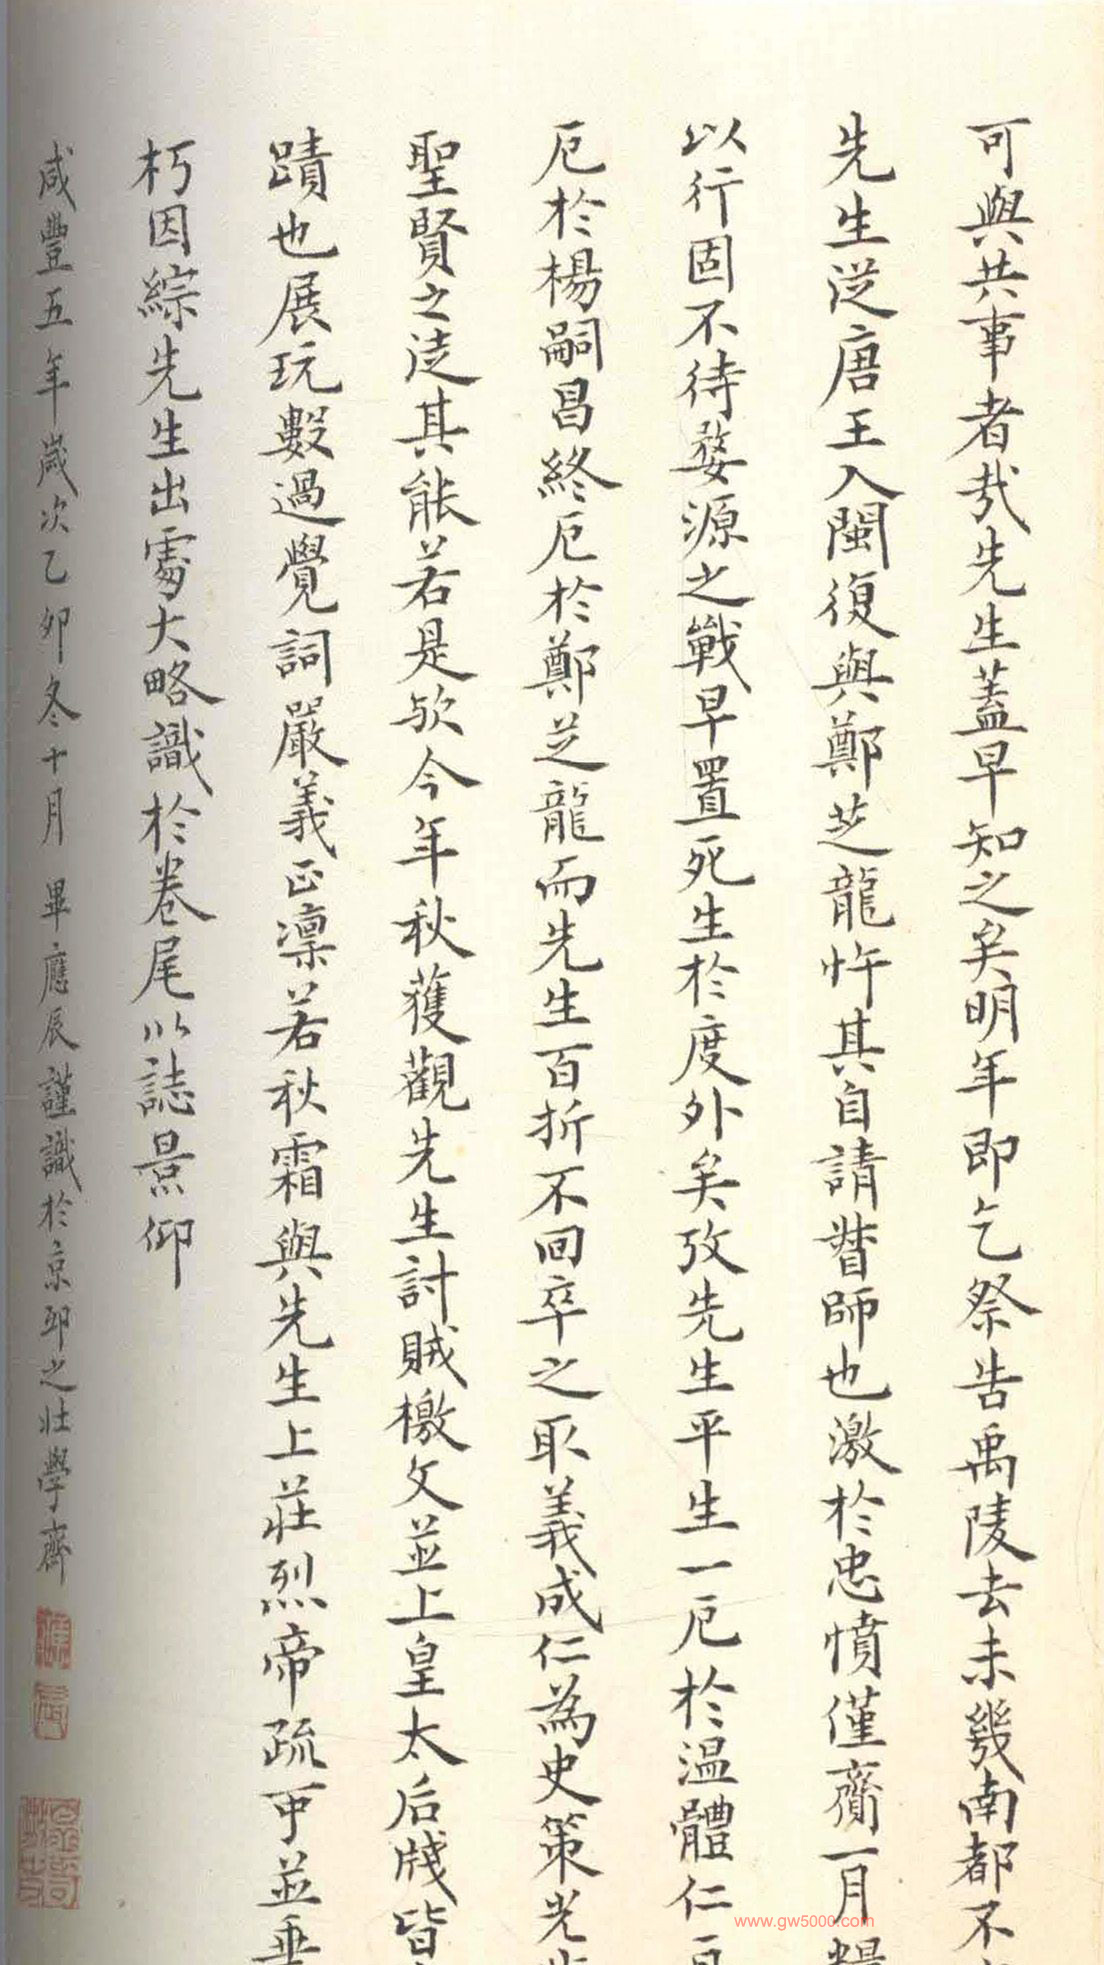 可與共事者哉先生蓋早知之矣明年即乞祭告禹陵去未幾南都不
先生從唐王入閩復與鄭芝龍忤其自請督師也激於忠憤僅齎一月糧
以行固不待婺源之戰早置死生於度外矣攷先生平生一厄於温體仁再
厄於楊嗣昌終厄於鄭芝龍而先生百折不回卒之取義成仁為史策光
聖賢之徒其能若是歟今年秋獲觀先生討賊檄文並上皇太后牋皆
蹟也展玩數過覺詞嚴義正凜若秋霜與先生上莊烈帝疏可並垂
朽因綜先生出處大略識於卷尾以誌景仰
咸豐五年歲次乙卯冬十月畢應辰謹識於京邸之壯學齋
應辰
www.gw5000.com